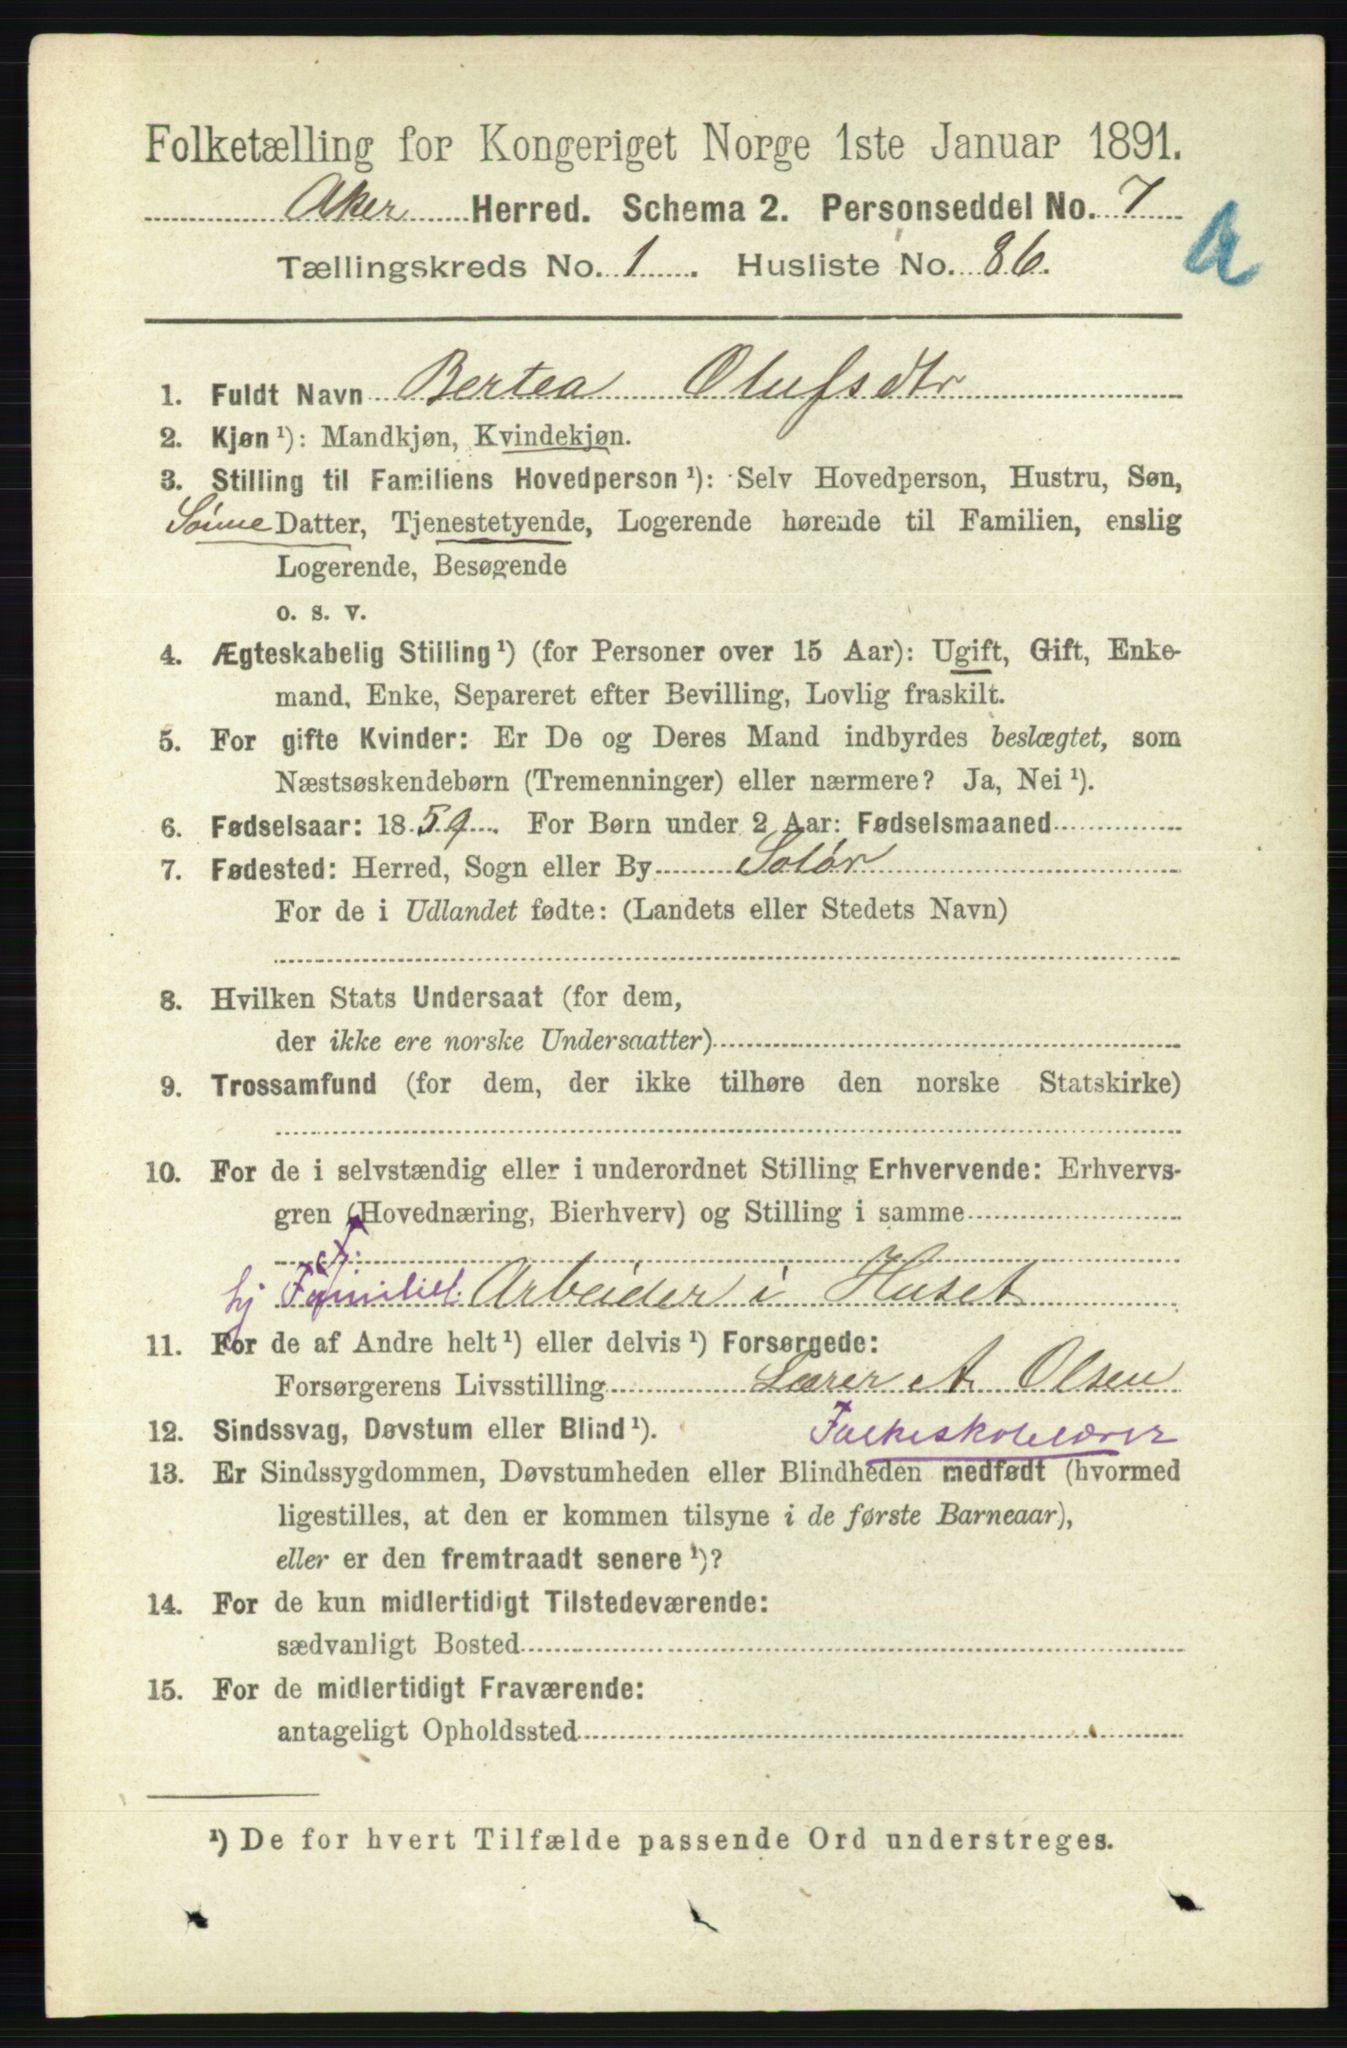 Folketælling for Kongeriget Norge 1ste Januar 1891.
Aker Herred. Schema 2. Personseddel No. 7
A
Tællingskreds No. 1. Husliste No. 86.
1. Fuldt Navn Bertea Olufsdtr
2. Kjøn ¹): Mandkjøn, Kvindekjøn.
3. Stilling til Familiens Hovedperson ¹): Selv Hovedperson, Hustru, Søn,
Sønne Datter, Tjenestetyende, Logerende hørende til Familien, enslig
Logerende, Besøgende
o. s. v.
4. Ægteskabelig Stilling ¹) (for Personer over 15 Aar): Ugift, Gift, Enke-
mand, Enke, Separeret efter Bevilling, Lovlig fraskilt.
5. For gifte Kvinder: Er De og Deres Mand indbyrdes beslægtet, som
Næstsøskendebørn (Tremenninger) eller nærmere? Ja, Nei ¹).
6. Fødselsaar: 1859. For Børn under 2 Aar: Fødselsmaaned
7. Fødested: Herred, Sogn eller By Solør
For de i Udlandet fødte: (Landets eller Stedets Navn)
8. Hvilken Stats Undersaat (for dem,
der ikke ere norske Undersaatter)
9. Trossamfund (for dem, der ikke tilhøre den norske Statskirke)
10. For de i selvstændig eller i underordnet Stilling Erhvervende: Erhvervs-
gren (Hovednæring, Bierhverv) og Stilling i samme
hj Familiel. Arbeider i Huset
11. For de af Andre helt ¹) eller delvis ¹) Forsørgede:
Forsørgerens Livsstilling Lærer A Olsen
12. Sindssvag, Døvstum eller Blind ¹). Folkeskolelærer
13. Er Sindssygdommen, Døvstumheden eller Blindheden medfødt (hvormed
ligestilles, at den er kommen tilsyne i de første Barneaar),
eller er den fremtraadt senere ¹)?
14. For de kun midlertidigt Tilstedeværende:
sædvanligt Bosted
15. For de midlertidigt Fraværende:
antageligt Opholdssted
¹) De for hvert Tilfælde passende Ord understreges.